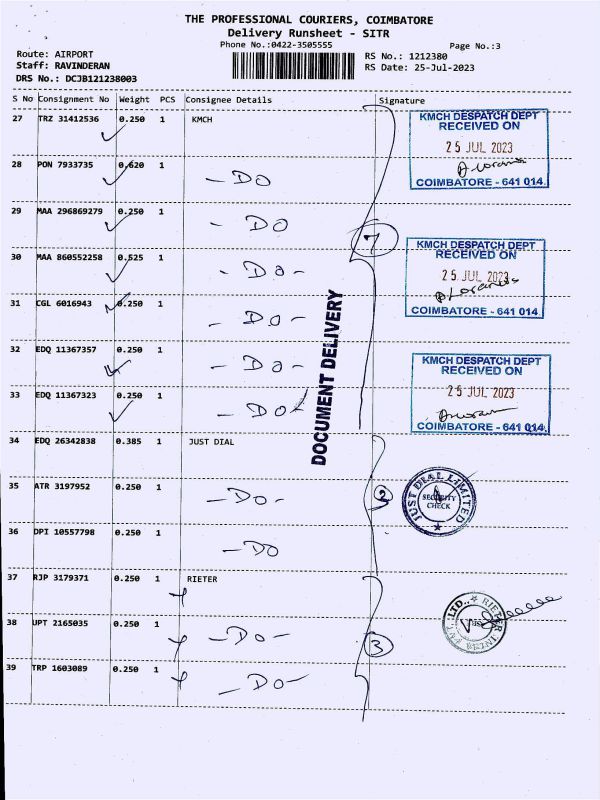 THE PROFESSIONAL COURIERS, COIMBATORE
Delivery Runsheet - SITR
Phone No.:0422-3505555
Page No.:3
Route: AIRPORT
Staff: RAVINDERAN
DRS No.: DCJB121238003
RS No.: 1212380
RS Date: 25-Jul-2023
S No Consignment No Weight PCS Consignee Details Signature
27 TRZ 31412536 0.250 1 KMCH
KMCH DESPATCH DEPT
RECEIVED ON
25 JUL 2023
COIMBATORE - 641 014.
28 PON 7933735 0.620 1 - DO
29 MAA 296869279 0.250 1 - DO
7
30 MAA 860552258 0.525 1 - DO -
KMCH DESPATCH DEPT
RECEIVED ON
25 JUL 2023
COIMBATORE - 641 014
31 CGL 6016943 0.250 1 - DO -
DOCUMENT DELIVERY
32 EDQ 11367357 0.250 1 - DO -
KMCH DESPATCH DEPT
RECEIVED ON
25 JUL 2023
COIMBATORE - 641 014.
33 EDQ 11367323 0.250 1 - DO -
34 EDQ 26342838 0.385 1 JUST DIAL
35 ATR 3197952 0.250 1 - DO -
2
JUST DIAL LIMITED
SECURITY
CHECK
36 DPI 10557798 0.250 1 - DO
37 RJP 3179371 0.250 1 RIETER
38 UPT 2165035 0.250 1 - DO -
3
39 TRP 1603089 0.250 1 - DO -